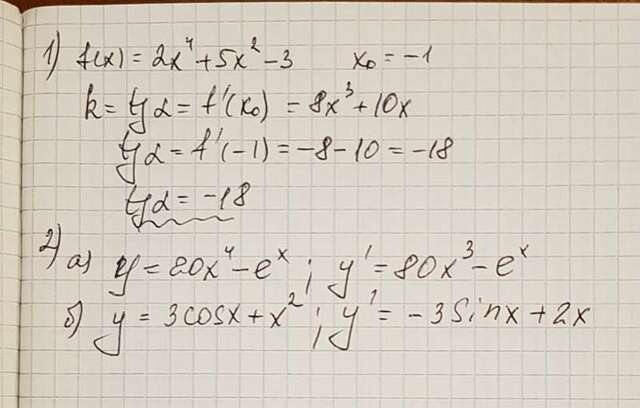 1) f(x) = 2x⁴ + 5x² - 3 x₀ = -1
k = tg α = f'(x₀) = 8x³ + 10x
tg α = f'(-1) = -8 - 10 = -18
tg α = -18
2) а) y = 20x⁴ - eˣ ; y' = 80x³ - eˣ
б) y = 3cosx + x² ; y' = -3sinx + 2x